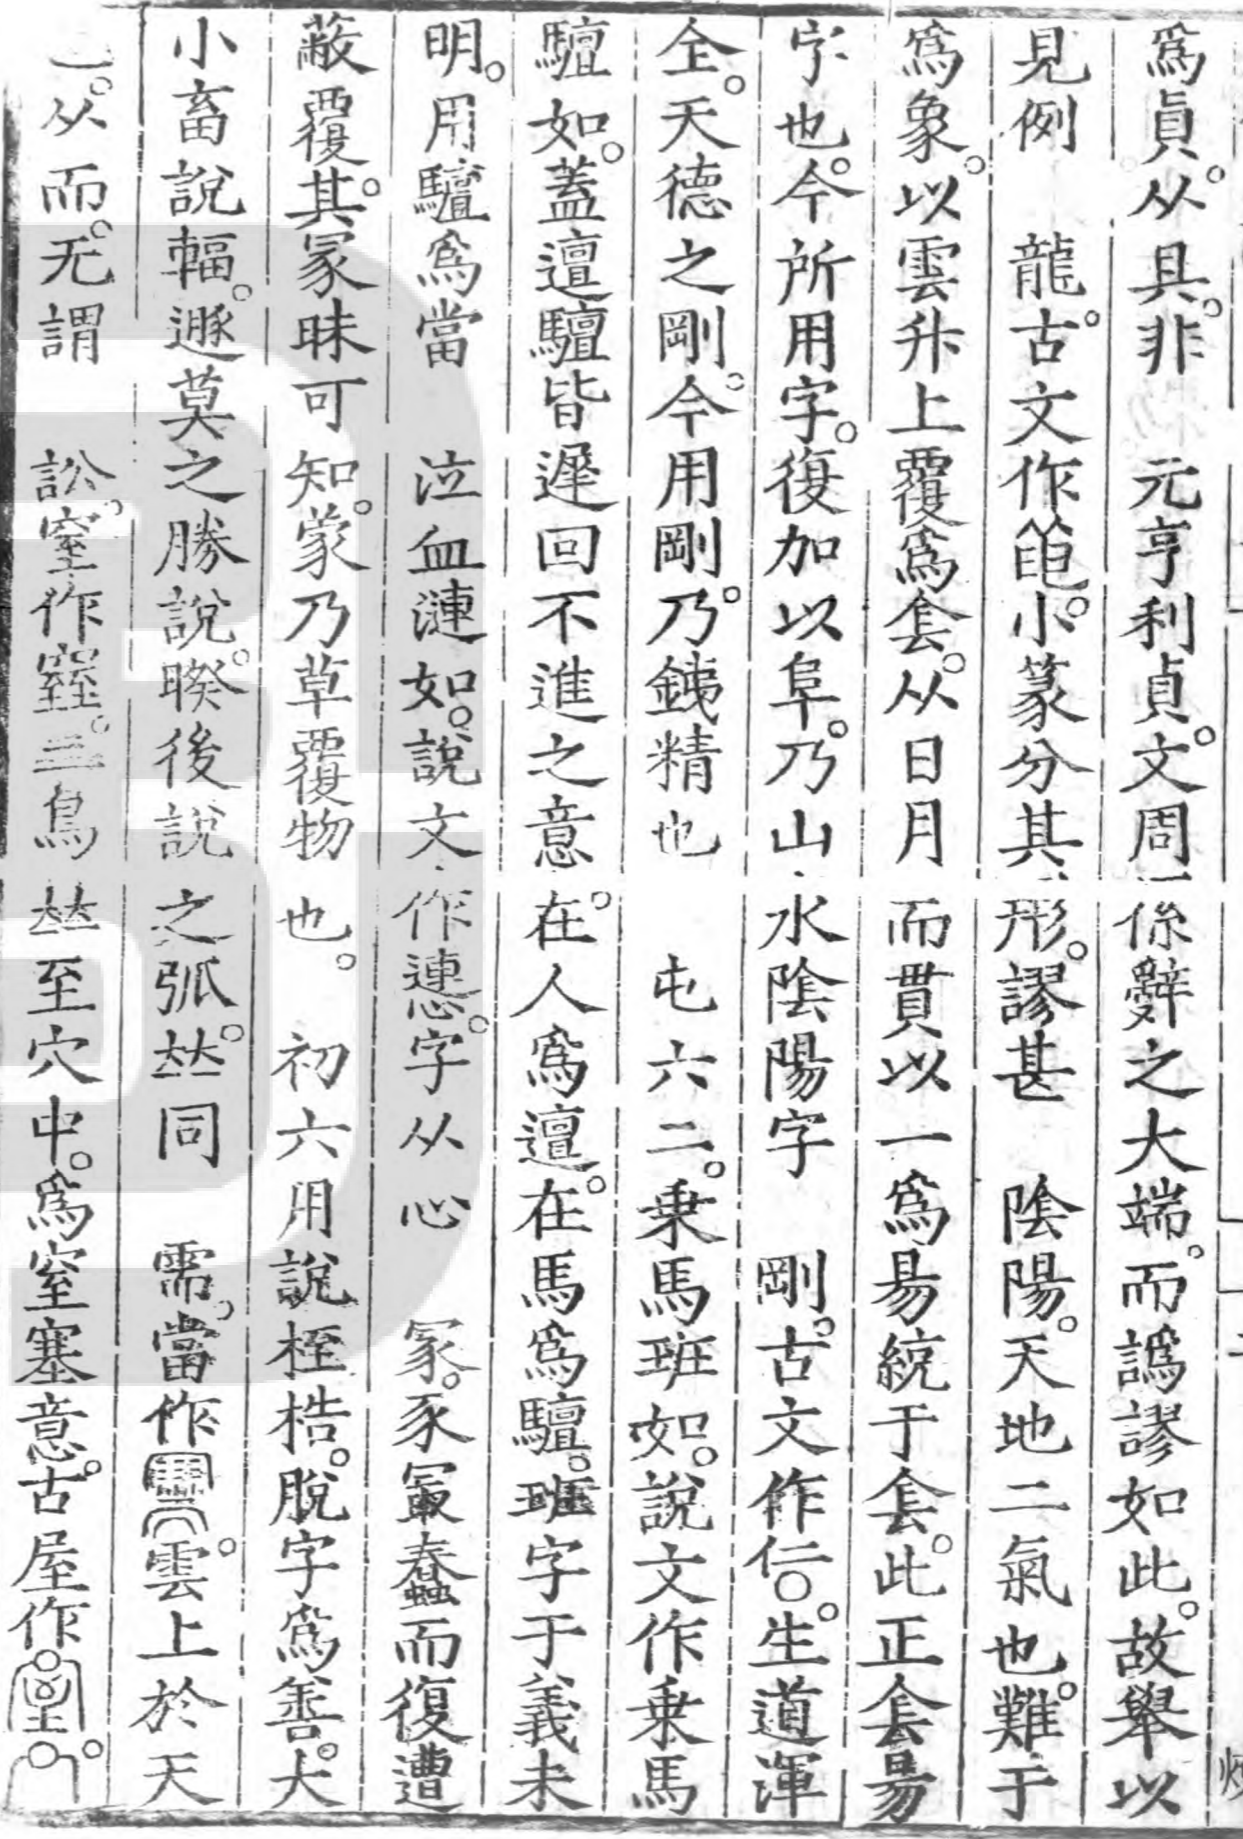 爲貞。从具。非　元亨利貞。文周係辭之大端。而譌謬如此。故舉以
見例　龍。古文作𥫉。小篆分其形。謬甚　陰陽。天地二氣也。難于
爲象。以雲升上覆爲侌。从日月而貫以一爲昜。統于侌。此正侌昜
字也。今所用字。復加以阜。乃山水陰陽字　剛。古文作仁〇。生道渾
全。天德之剛。今用剛。乃銕精也　屯六二。乗馬班如。說文作乗馬
驙如。蓋邅驙皆遲回不進之意。在人爲邅。在馬爲驙。班字于義未
明。用驙爲當　泣血漣如。說文作㦁。字从心　冡。豕冣蠢而復遭
蔽覆。其冡昧可知。蒙乃草覆物也。　初六用說桎梏。脫字爲善。大
小畜說輻。遯莫之勝說。睽後說之弧。𠀤同　需。當作。雲上於天
从而。无謂　訟。窒作窒。三鳥𠀤至穴中。爲窒塞意。古屋作